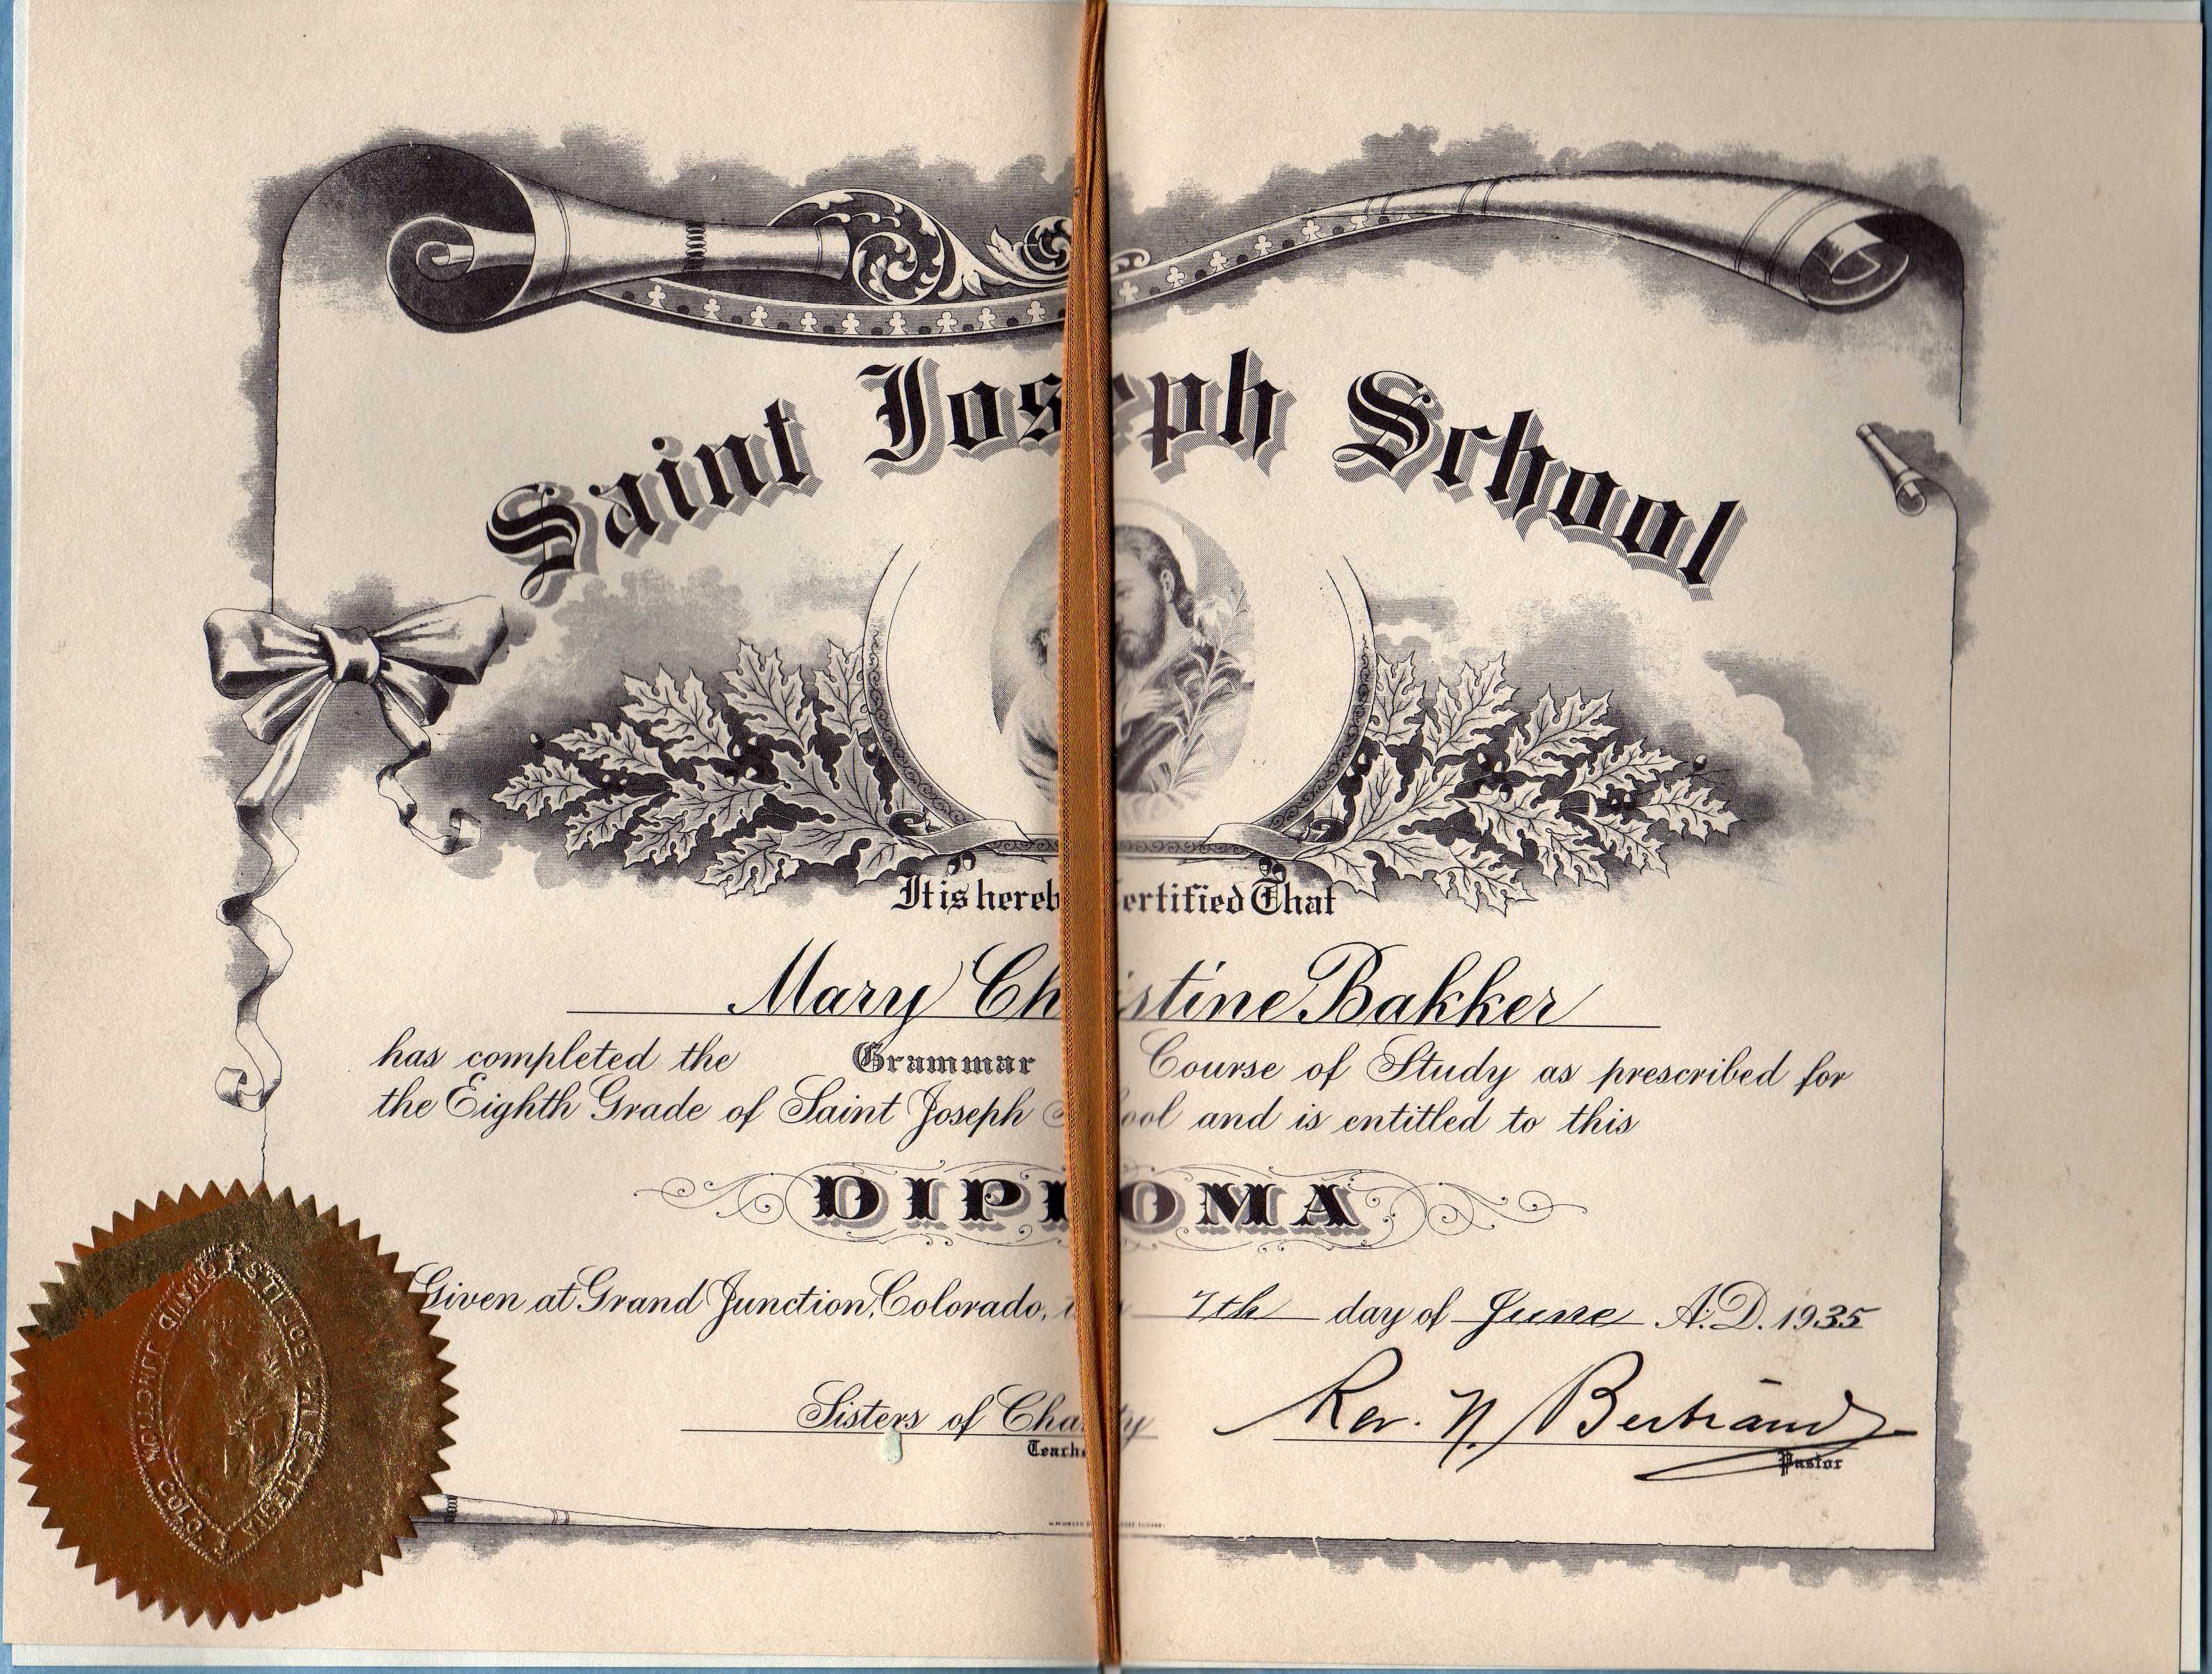 Saint Joseph School
It is hereb ertified That
Mary Ch istine Bakker
has completed the Grammar Course of Study as prescribed for
the Eighth Grade of Saint Joseph S ool and is entitled to this
DIPLOMA
Given at Grand Junction, Colorado, 7th day of June A.D. 1935
Sisters of Cha ty Rev. N. Bertrand
Teache Pastor
GRAND JUNCTION COLO